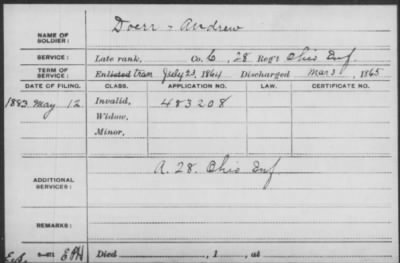 NAME OF SOLDIER: Doerr - Andrew
SERVICE: Late rank, Co. C, 28 Reg't Ohio Inf.
TERM OF SERVICE: Enlisted July 23, 1864 Discharged Mar 3, 1865
DATE OF FILING. CLASS. APPLICATION NO. LAW. CERTIFICATE NO.
1883 May 12 Invalid, 483208
Widow,
Minor,
ADDITIONAL SERVICES: A. 28. Ohio Inf
REMARKS:
Died , 1 , at